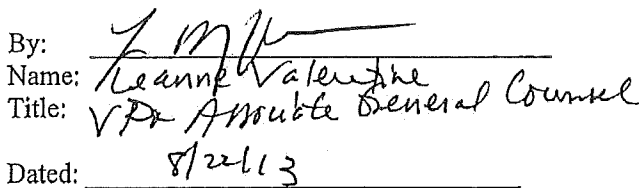 By:
Name: Leanne Valentine
Title: VP & Associate General Counsel
Dated: 8/22/13